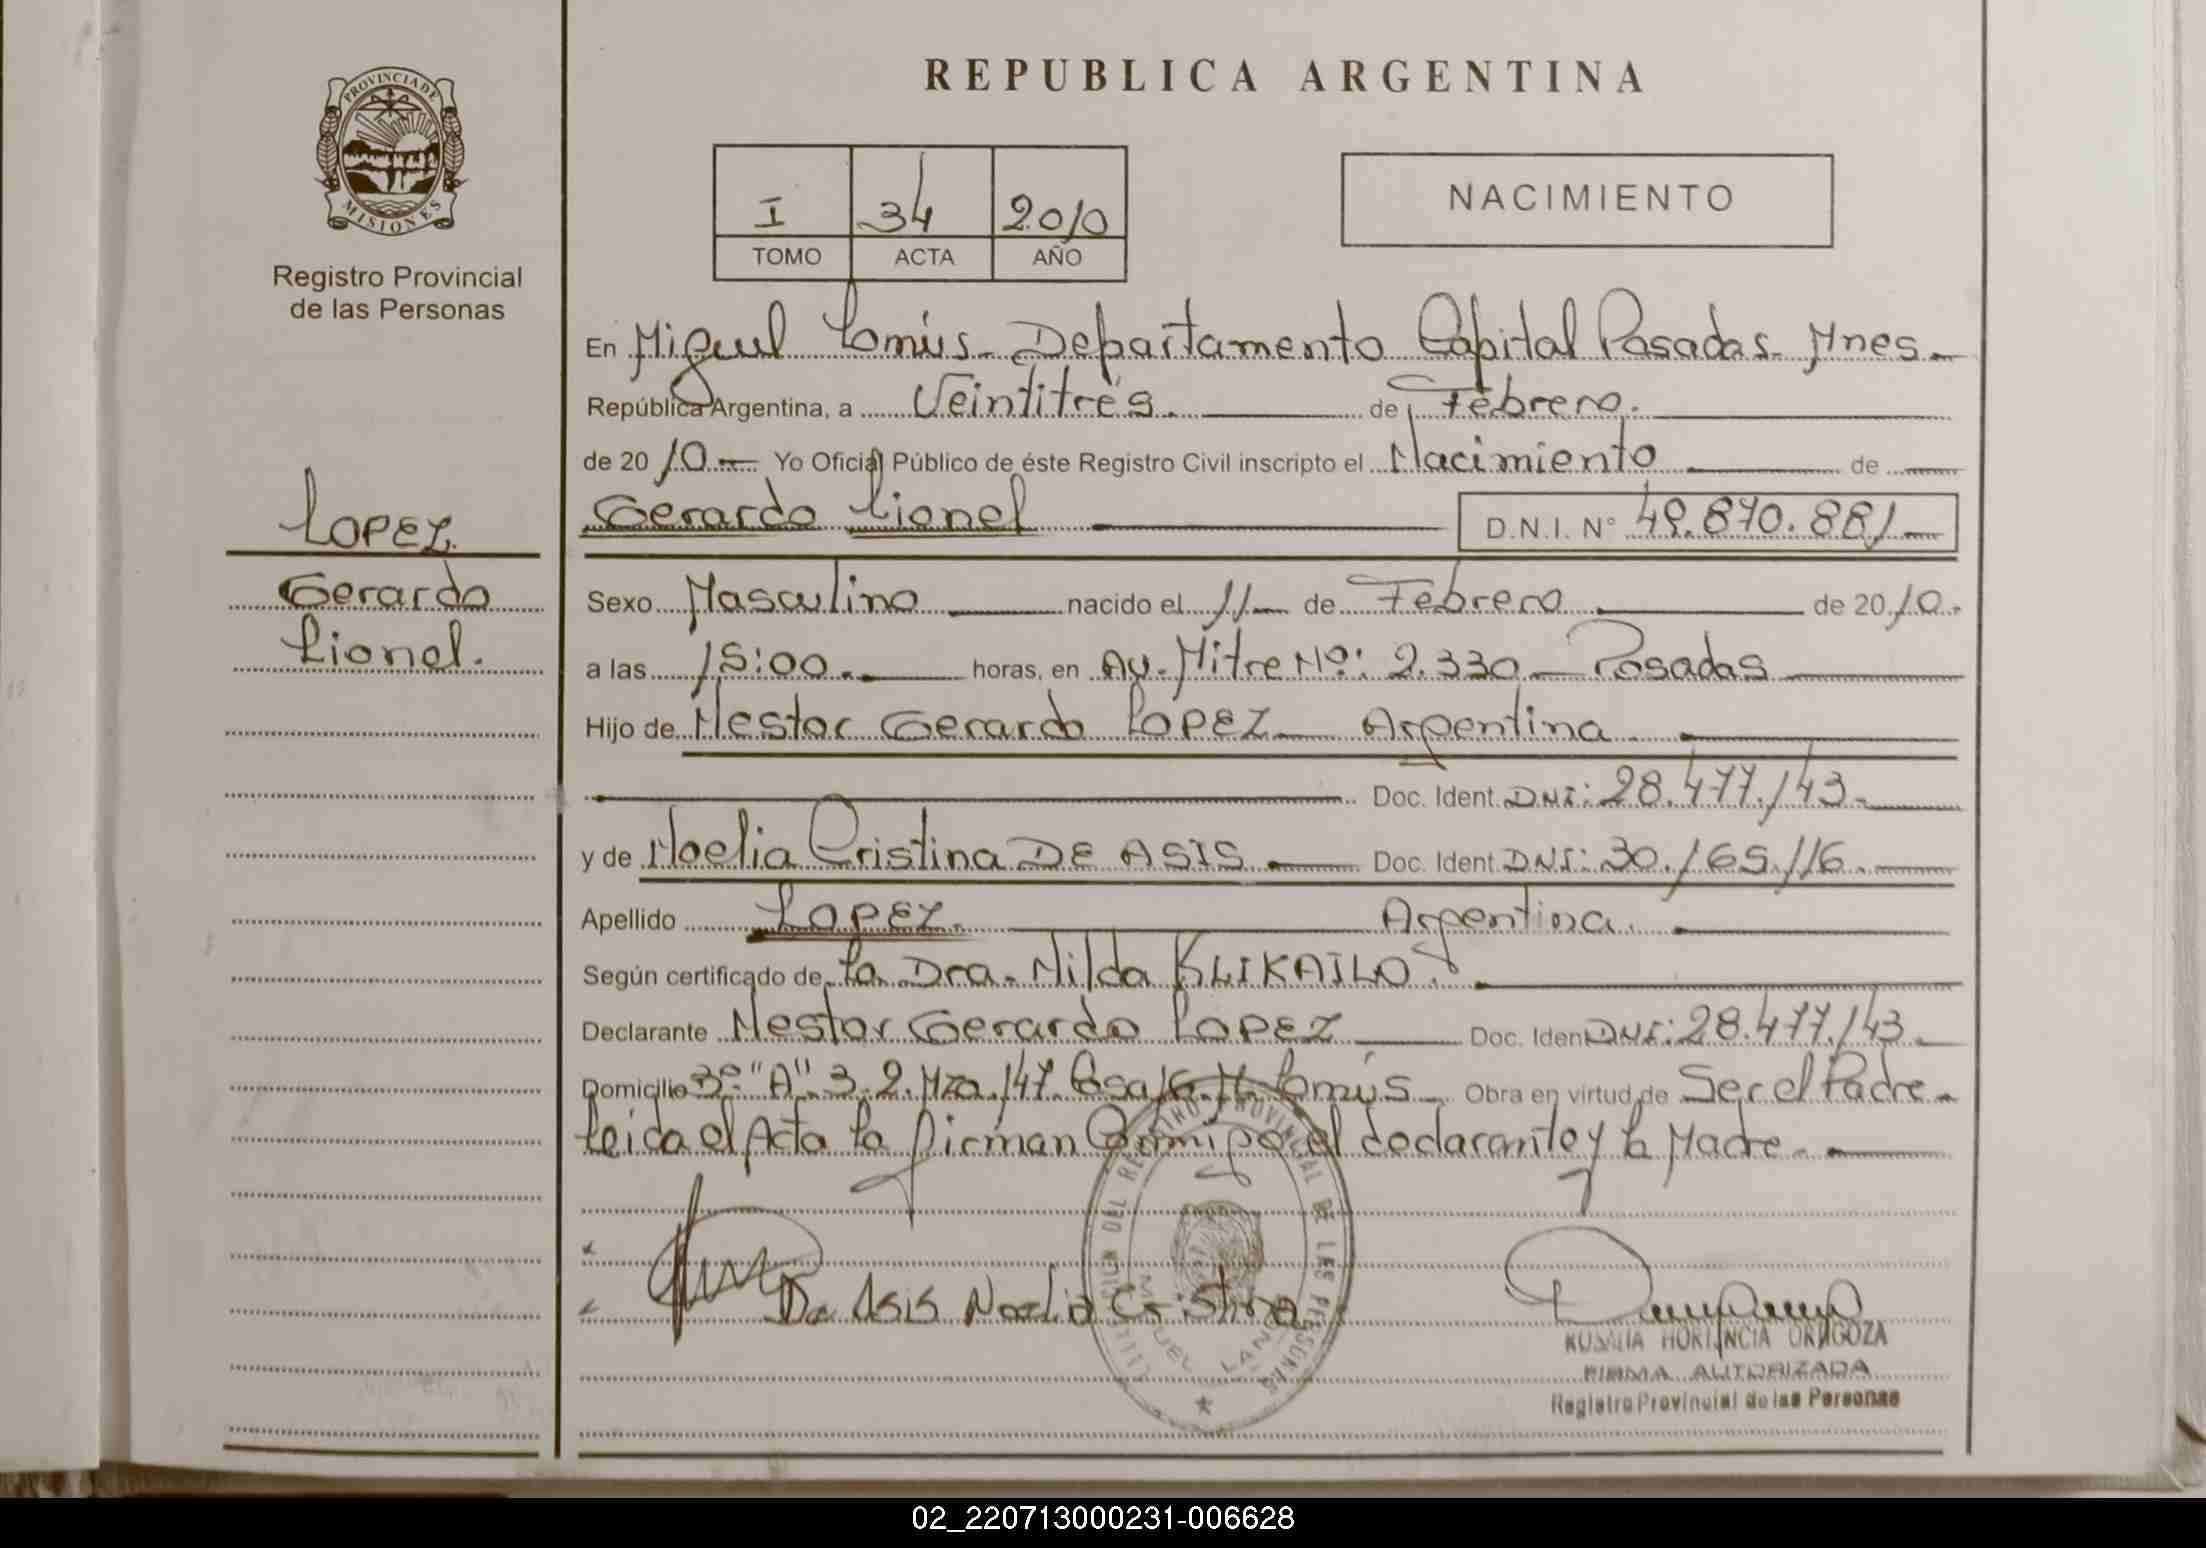 PROVINCIA DE
MISIONES
Registro Provincial
de las Personas
LOPEZ
Gerardo
Lionel.
REPUBLICA ARGENTINA
I 34 2010
TOMO ACTA AÑO
NACIMIENTO
En Miguel Lanús - Departamento Capital Posadas - Mnes -
República Argentina, a Veintitrés. de Febrero.
de 2010 - Yo Oficial Público de éste Registro Civil inscripto el Nacimiento de
Gerardo Lionel D.N.I. N° 49.870.881
Sexo Masculino nacido el 11 de Febrero de 2010.
a las 15:00. horas, en Av. Mitre Nº: 2.330 - Posadas
Hijo de Nestor Gerardo LOPEZ Argentina
Doc. Ident. DNI: 28.477.143 -
y de Noelia Cristina DE ASIS Doc. Ident. DNI: 30.165.116.
Apellido LOPEZ. Argentina.
Según certificado de La Dra. Nilda KLIKAILO.
Declarante Nestor Gerardo LOPEZ Doc. Iden DNI: 28.477.143.
Domicilio 3º "A" 3.2. Mza. 147. Casa 16. M. Lanús Obra en virtud de Ser el Padre -
Leida el Acta la firman Conmigo el declarante y la Madre.
De Asis Noelia Cristina
REGISTRO PROVINCIAL DE LAS PERSONAS
MIGUEL LANUS
ROSALIA HORTENCIA ORAGOZA
FIRMA AUTORIZADA
Registro Provincial de las Personas
02_220713000231-006628